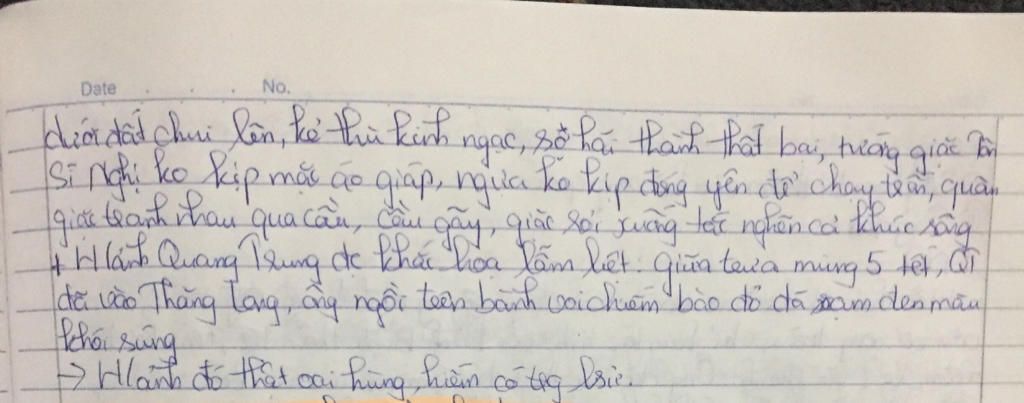 Date . . . No.
dưới đất chui lên, kẻ thù kinh ngạc, sợ hãi thành thất bại, tướng giặc Tôn
Sĩ Nghị ko kịp mặc áo giáp, ngựa ko kịp đóng yên để chạy trốn, quân
giặc tranh nhau qua cầu, cầu gãy, giặc rơi xuống tắc nghẽn cả khúc sông
+ H/ảnh Quang Trung đc khắc họa lẫm liệt. Giữa trưa mùng 5 tết, QT
đã vào Thăng Long, ông ngồi trên bành voi chiếm bào đỏ đã sạm đen màu
khói súng
→ H/ảnh đó thật oai hùng, hiếm có trg lsử.